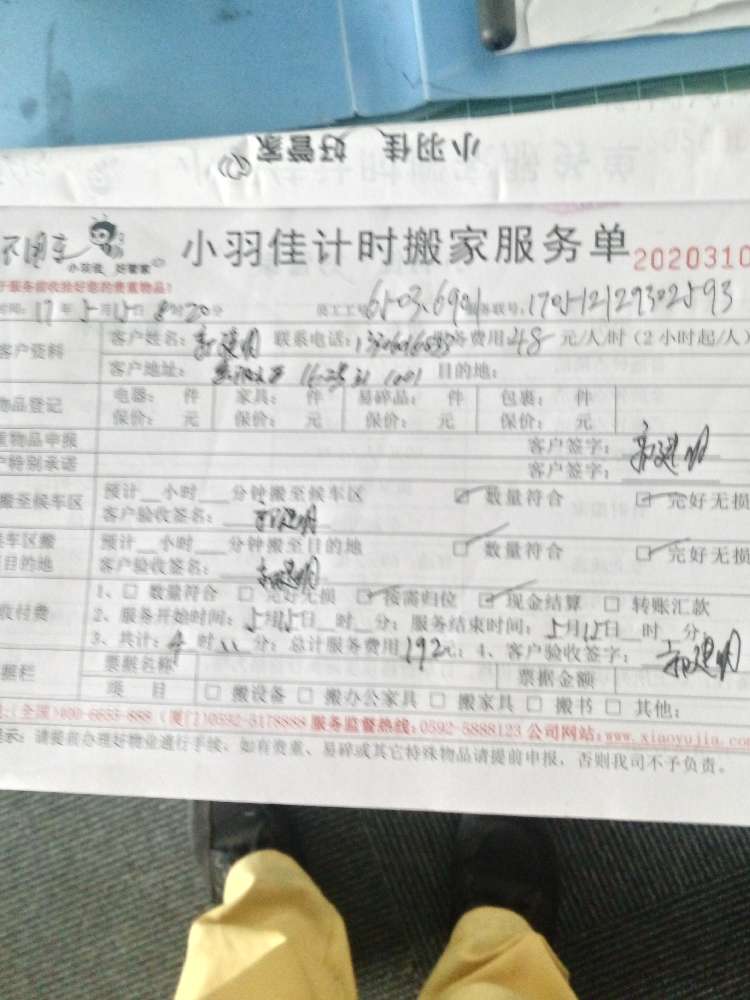 小羽佳 好管家
小羽佳 好管家
小羽佳计时搬家服务单 2020310
服务前收拾好您的贵重物品!
时间: 17 年 5 月 15 日 8 时 20 分 员工工号 服务联号:
客户资料 客户姓名: 联系电话: 服务费用 48 元/人/时 (2小时起/人)
客户地址: 1001 目的地:
物品登记 电器: 件 家具: 件 易碎品: 件 包裹: 件
保价: 元 保价: 元 保价: 元 保价: 元
重物品申报 客户签字:
户特别承诺 客户签字:
搬至候车区 预计__小时__分钟搬至候车区 数量符合 完好无损
客户验收签名:
候车区搬 预计__小时__分钟搬至目的地 数量符合 完好无损
目的地 客户验收签名:
收付费 1、□ 数量符合 □ 完好无损 □ 按需归位 □ 现金结算 □ 转账汇款
2、服务开始时间: 5月15日__时__分; 服务结束时间: 5月15日__时__分;
3、共计: 4 时 分; 总计服务费用 192 元; 4、客户验收签字:
据栏 票据名称 票据金额
项 目 □ 搬设备 □ 搬办公家具 □ 搬家具 □ 搬书 □ 其他:
(全国)400-6655-888 (厦门)0592-5178888 服务监督热线:0592-5888123 公司网站:www.xiaoyujia.com
提示: 请提前办理好物业进行手续, 如有贵重、易碎或其它特殊物品请提前申报, 否则我司不予负责。